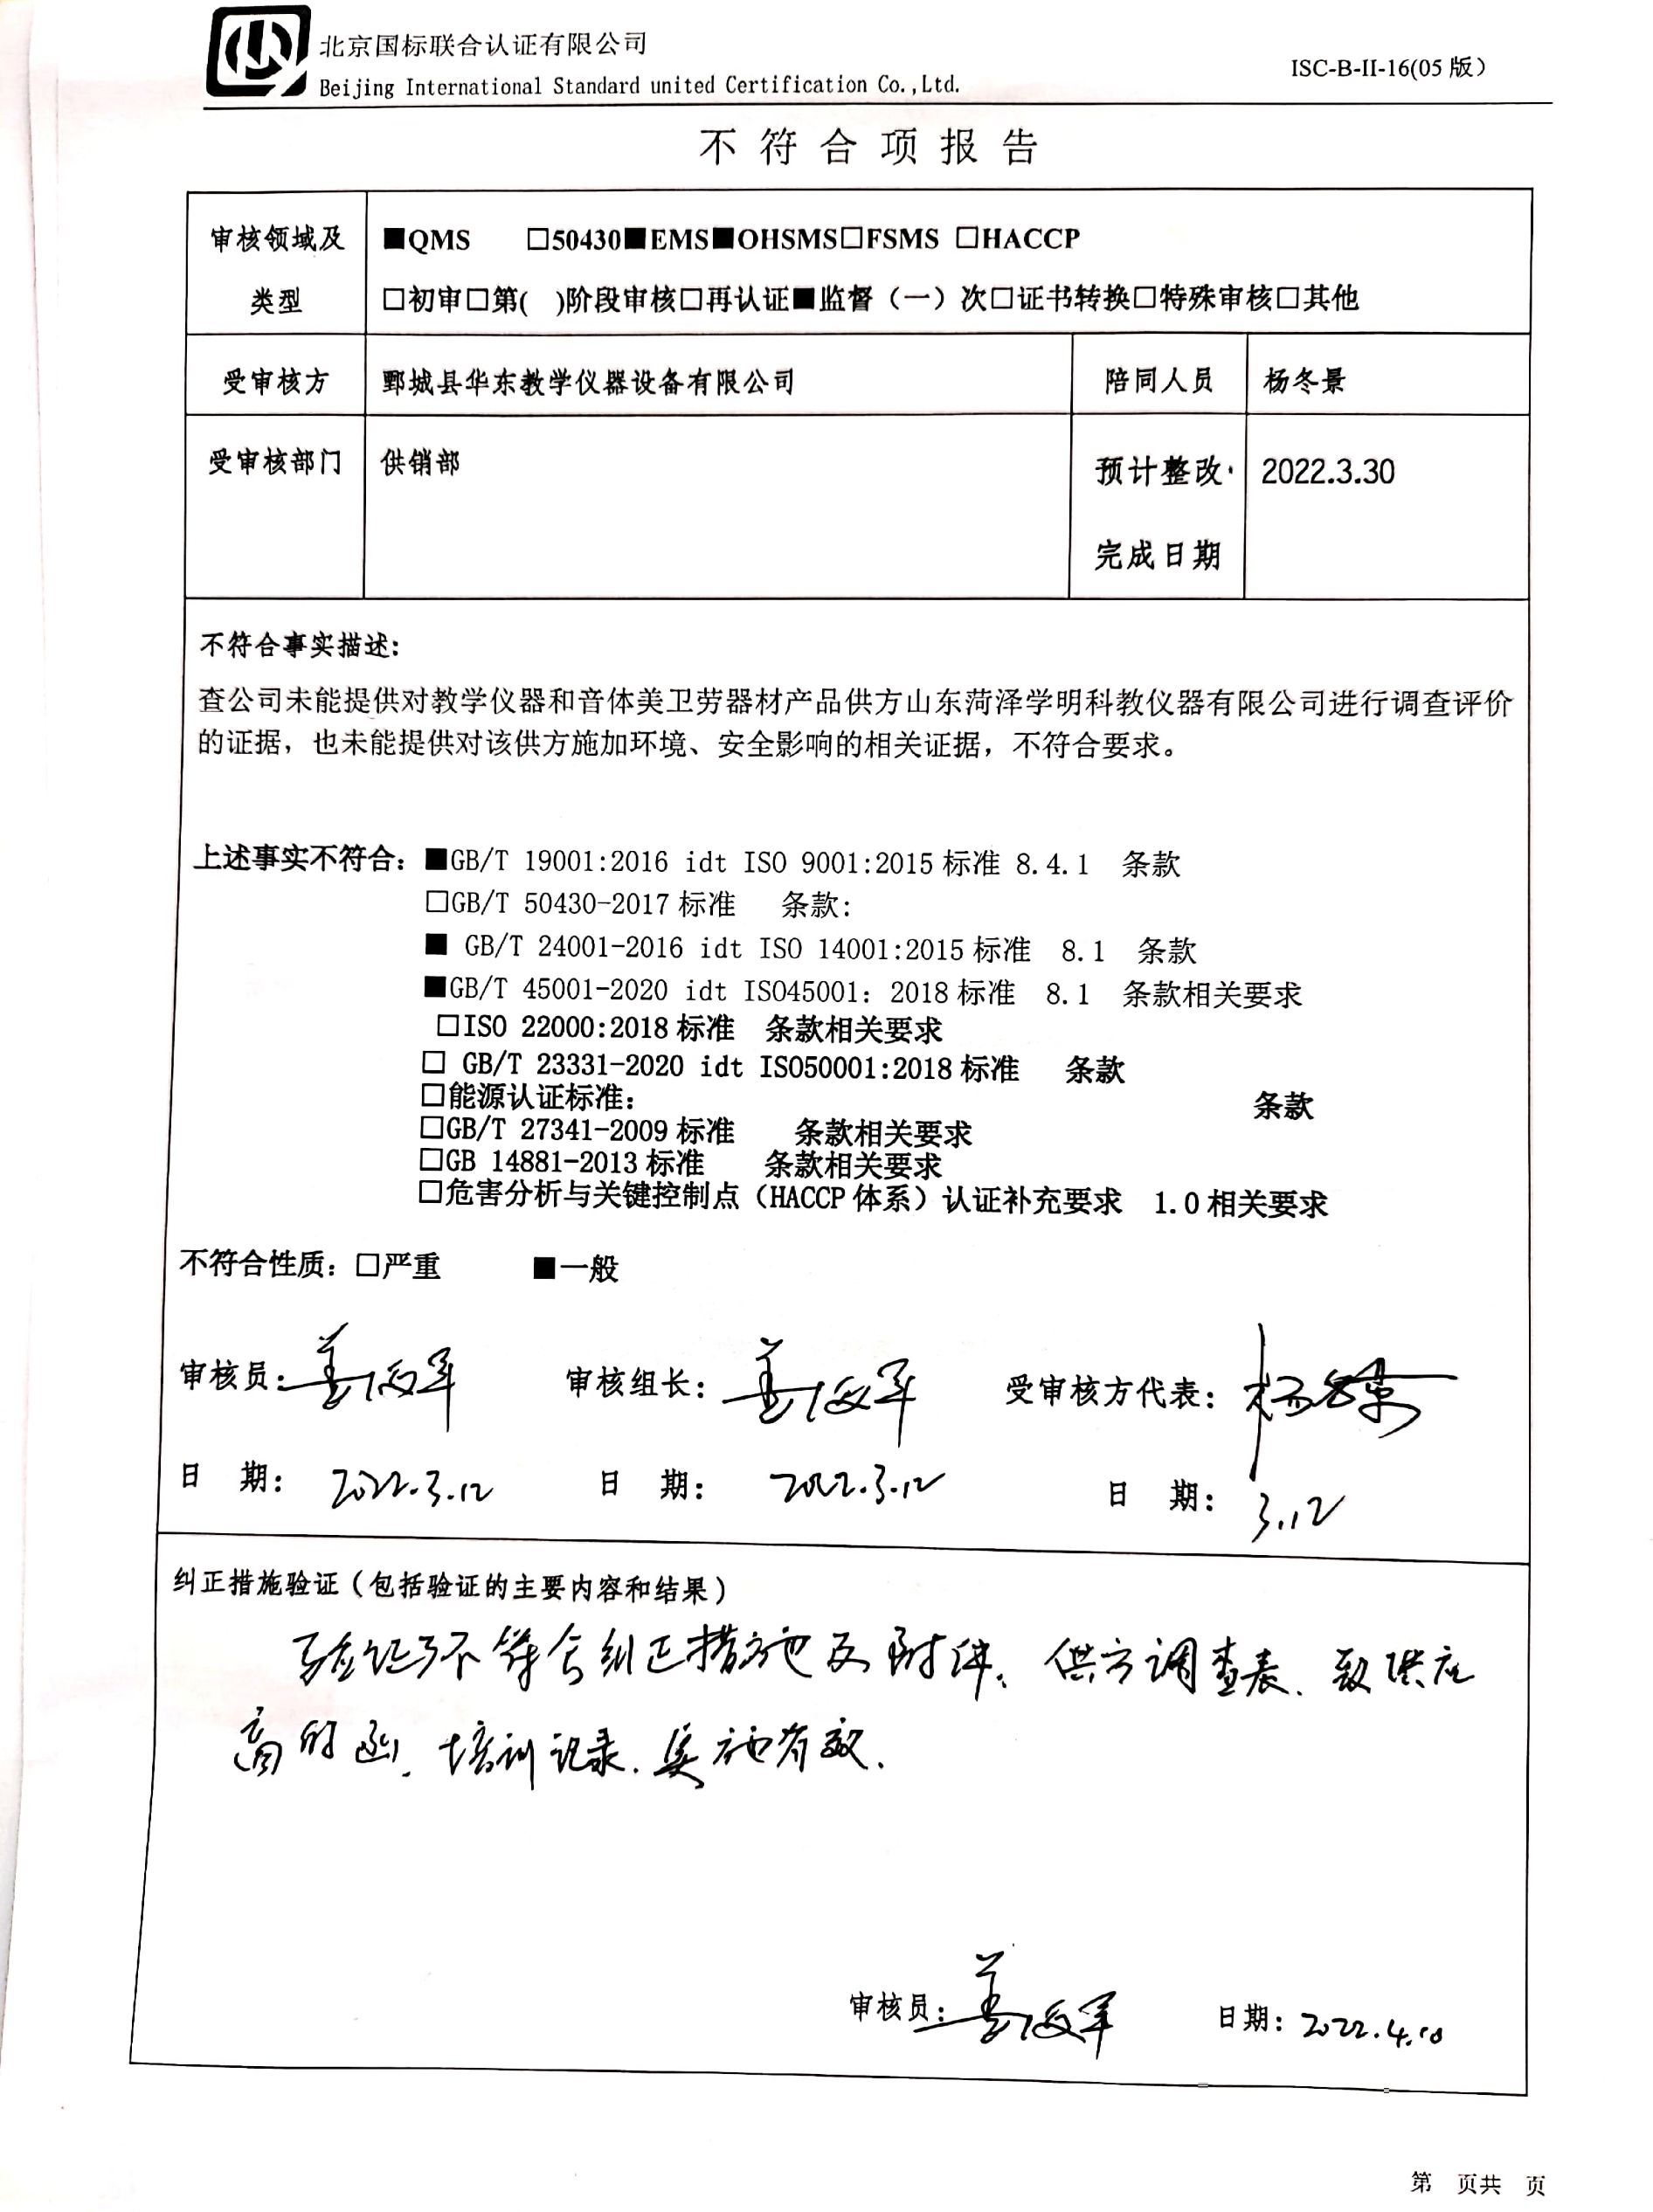 北京国标联合认证有限公司
Beijing International Standard united Certification Co.,Ltd.
ISC-B-II-16(05 版)
不符合项报告
审核领域及类型
■QMS □50430■EMS■OHSMS□FSMS □HACCP
□初审□第( )阶段审核□再认证■监督（一）次□证书转换□特殊审核□其他
受审核方 鄄城县华东教学仪器设备有限公司 陪同人员 杨冬景
受审核部门 供销部 预计整改 2022.3.30
完成日期
不符合事实描述：
查公司未能提供对教学仪器和音体美卫劳器材产品供方山东菏泽学明科教仪器有限公司进行调查评价
的证据，也未能提供对该供方施加环境、安全影响的相关证据，不符合要求。
上述事实不符合：■GB/T 19001:2016 idt ISO 9001:2015 标准 8.4.1 条款
□GB/T 50430-2017 标准 条款：
■ GB/T 24001-2016 idt ISO 14001:2015 标准 8.1 条款
■GB/T 45001-2020 idt ISO45001：2018 标准 8.1 条款相关要求
□ISO 22000:2018 标准 条款相关要求
□ GB/T 23331-2020 idt ISO50001:2018 标准 条款
□能源认证标准： 条款
□GB/T 27341-2009 标准 条款相关要求
□GB 14881-2013 标准 条款相关要求
□危害分析与关键控制点（HACCP 体系）认证补充要求 1.0 相关要求
不符合性质：□严重 ■一般
审核员： 审核组长： 受审核方代表：杨冬景
日 期：2022.3.12 日 期：2022.3.12 日 期：3.12
纠正措施验证（包括验证的主要内容和结果）
验证了不符合纠正措施及附件、供方调查表、致供应
商的函、培训记录.实施有效.
审核员： 日期：2022.4.10
第 页共 页